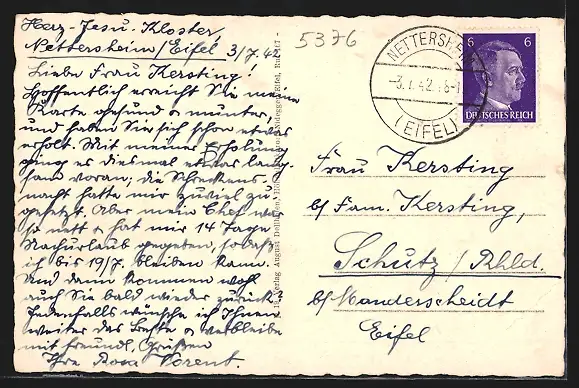 Herz-Jesu-Kloster,
Nettersheim/Eifel 3/7.42
Liebe Frau Kersting!
Hoffentlich erreicht Sie meine
Karte gesund & munter,
und haben Sie sich schon etwas
erholt. Mit meiner Erholung
ging es diesmal etwas lang-
sam voran; die Schreckens-
nacht hatte mir zuviel zu-
gesetzt. Aber mein Chef war
so nett & hat mir 14 Tage
Nachurlaub gegeben, sodaß
ich bis 19/7. bleiben kann.
Und dann kommen wohl
auch Sie bald wieder zurück?
Jedenfalls wünsche ich Ihnen
weiter das Beste & verbleibe
mit freundl. Grüßen
Ihre Rosa
5376
NETTERSHEIM
-3.7.42
(EIFEL)
6 6
DEUTSCHES REICH
Verlag August
Frau Kersting
b/ Fam. Kersting,
Schutz / Rhld.
b/ Manderscheidt
Eifel